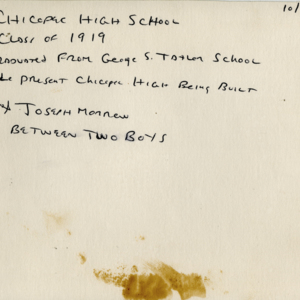 10/
CHICOPEE HIGH SCHOOL
CLASS OF 1919
GRADUATED FROM GEORGE S. TAYLOR SCHOOL
PRESENT CHICOPEE HIGH BEING BUILT
X JOSEPH MORROW
BETWEEN TWO BOYS